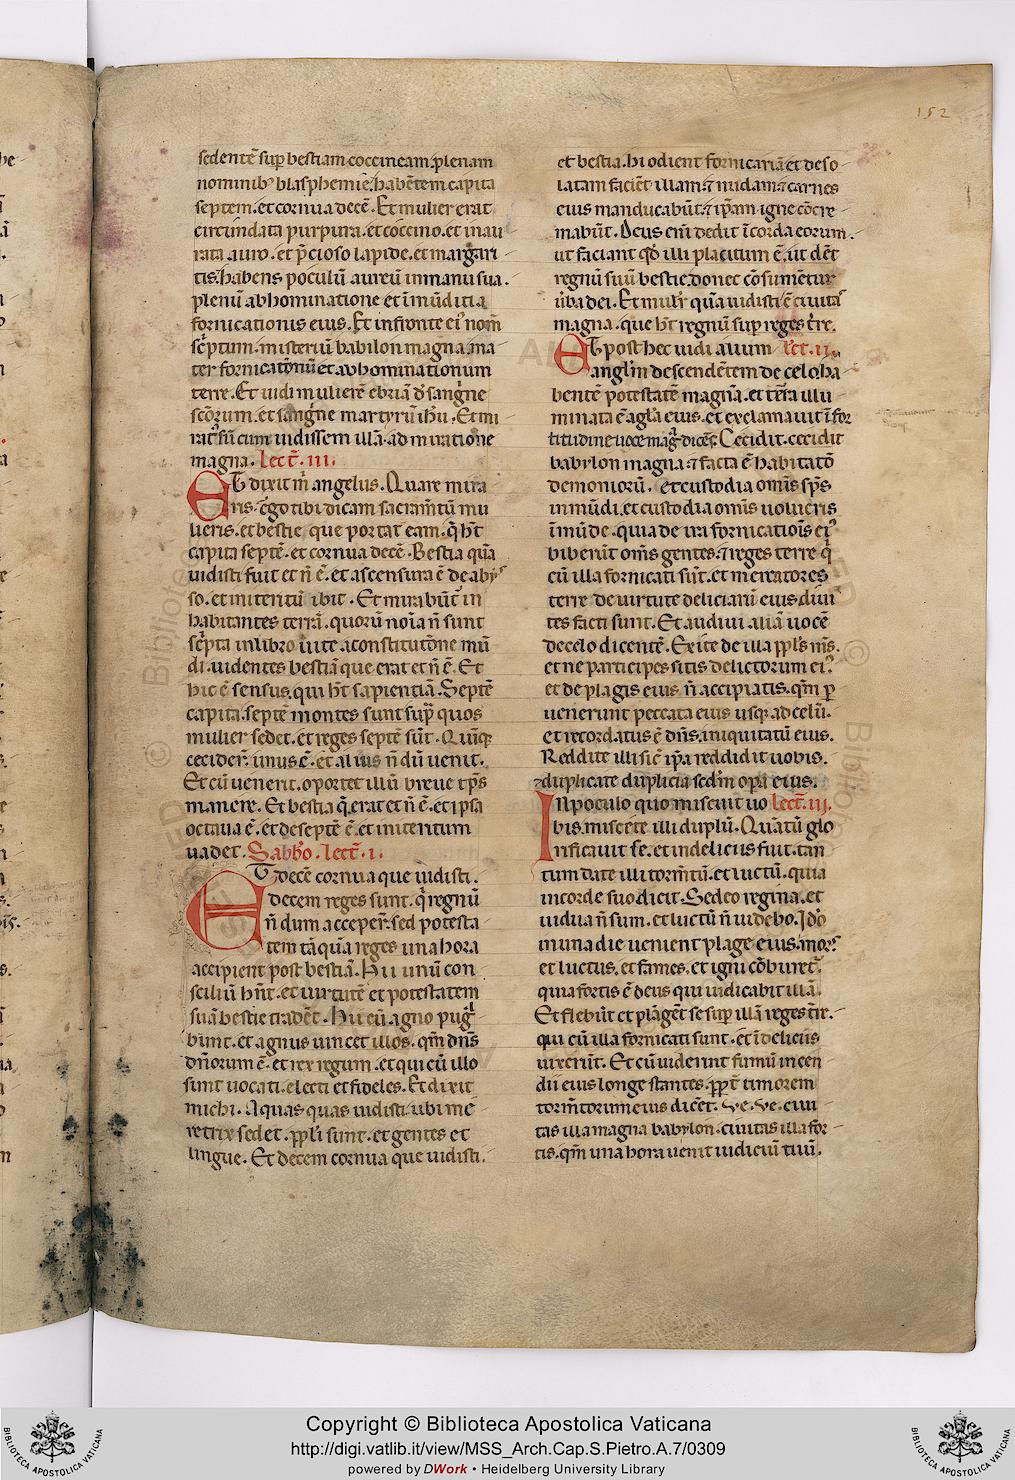 152
sedentē sup bestiam coccineam plenam
nominib; blasphemie. habētem capita
septem. et cornua decē. Et mulier erat
circūndata purpura. et coccino. et inau
rata auro. et p̄cioso lapide. et margari
tis. habens poculū aureū in manu sua.
plenū abhominatione et īmūditia
fornicationis eius. Et in fronte ei' nom̄
sc̄ptum. misteriū babilon magna. ma
ter fornicatōnū et abhominationum
terre. Et uidi mulierē ebriā d̄ sanḡne
scōrum. et sanḡne martyrū ihū. Et mi
rat' sū cum uidissem illā. admiratiōe
magna. lect̄. iii.
Et dixit m̄ angelus. Quare mira
ris. ēgo tibi dicam sacram̄tū mu
lieris. et bestie que portat eam. q̄ ht̄
capita septē. et cornua decē. Bestia quā
uidisti fuit et n̄ ē. et ascensura ē de abys
so. et in teritū ibit. Et mirabūt' in
habitantes terrā. quorū noīa n̄ sunt
sc̄pta in libro uite a constitutōne mū
di. uidentes bestiā que erat et n̄ ē. Et
hic ē sensus. qui ht̄ sapientiā. Septē
capita. septē montes sunt sup̄ quos
mulier sedet. et reges septē sūt. Quīq;
cecider̄. unus ē. et alius n̄ dū uenit.
Et cū uenerit. oportet illū breue tp̄s
manere. Et bestia q̄ erat et n̄ ē. et ipsa
octaua ē. et de septē ē. et in teritum
uadet. Sabb̄o. lect̄. i.
Et decē cornua que uidisti.
decem reges sunt. q̄ regnū
n̄ dum acceper̄. sed potesta
tem tāquā reges una hora
accipient post bestiā. Hii unū con
siliū hn̄t. et uirtutē et potestatem
suā bestie tradēt. Hii cū agno puḡ
būnt. et agnus uincet illos. qm̄ dn̄s
dn̄orum ē. et rex regum. et qui cū illo
sunt uocati. electi et fideles. Et dixit
michi. Aquas quas uidisti ubi me
retrix sedet. ppl̄i sunt. et gentes et
lingue. Et decem cornua que uidisti.
et bestia. hi odient fornicariā et deso
latam faciēt illam. ⁊ nudam. ⁊ carnes
eius manducabūt. ⁊ ip̄am igne cōcre
mabūt. Deus enī dedit ī corda eorum.
ut faciant qd̄ illi placitum ē. ut dēt
regnū suū bestie. donec cōsumētur
ūba dei. Et mulī quā uidisti ē ciuita'
magna. que ht̄ regnū sup reges tr̄e.
Et post hec uidi alium lect̄. ii.
angl̄m descendētem de celo. ha
bentē potestatē magnā. et terra illu
minata ē a gl̄a eius. et exclamauit ī for
titudine uoce maḡ. dicēs. Cecidit. cecidit
babylon magna. ⁊ facta ē habitatō
demoniorū. et custodia om̄is sp̄s
inmūdi. et custodia om̄is uolucris
īmūde. quia de ira fornicatiōis ei'
biberūt om̄s gentes. ⁊ reges terre q̄
cū illa fornicati sūt. et mercatores
terre de uirtute deliciarū eius. diui
tes facti sunt. Et audiui aliā uocē
de celo dicentē. Exite de illa ppl̄s m̄s.
et ne participes sitis delictorum ei'.
et de plagis eius n̄ accipiatis. qm̄ p
uenerunt peccata eius usq; ad celū.
et recordatus ē dn̄s. iniquitatū eius.
Reddite illi sic̄ ip̄a reddidit uobis.
⁊ duplicate duplicia sed̄m opa eius.
In poculo quo miscuit uo lect̄. iij.
bis. miscete illi duplū. Quātū glo
rificauit se. et in deliciis fuit. tan
tum date illi torm̄tū. et luctū. quia
in corde suo dicit. Sedeo regina. et
uidua n̄ sum. et luctū n̄ uidebo. Id̄o
in una die uenient plage eius. mors
et luctus. et fames. et igni cōburet'.
quia fortis ē deus qui iudicabit illā.
Et flebūt et plāgēt se sup illā reges tr̄e.
qui cū illa fornicati sunt. et ī deliciis
uixerūt. Et cū uiderint fumū incen
dii eius longe stantes. ppt̄ timorem
torm̄torum eius dicēt. Ve. Ve. ciui
tas illa magna babylon. ciuitas illa for
tis. qm̄ una hora uenit iudiciū tuū.
Copyright © Biblioteca Apostolica Vaticana
http://digi.vatlib.it/view/MSS_Arch.Cap.S.Pietro.A.7/0309
powered by DWork • Heidelberg University Library
BIBLIOTECA APOSTOLICA VATICANA
BIBLIOTECA APOSTOLICA VATICANA